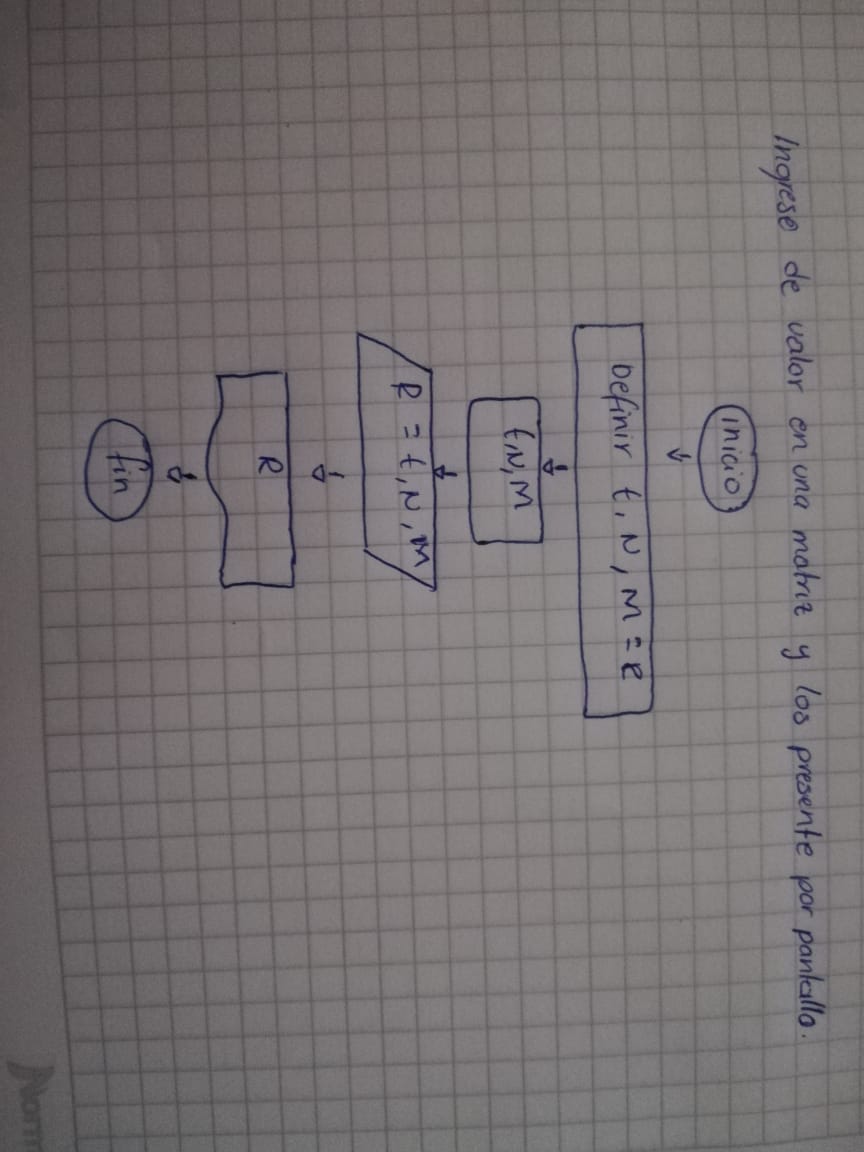 Ingrese de valor en una matriz y los presente por pantalla.
inicio
Definir t, N, M = R
t,N,M
R = t,N,M
R
fin
Norm